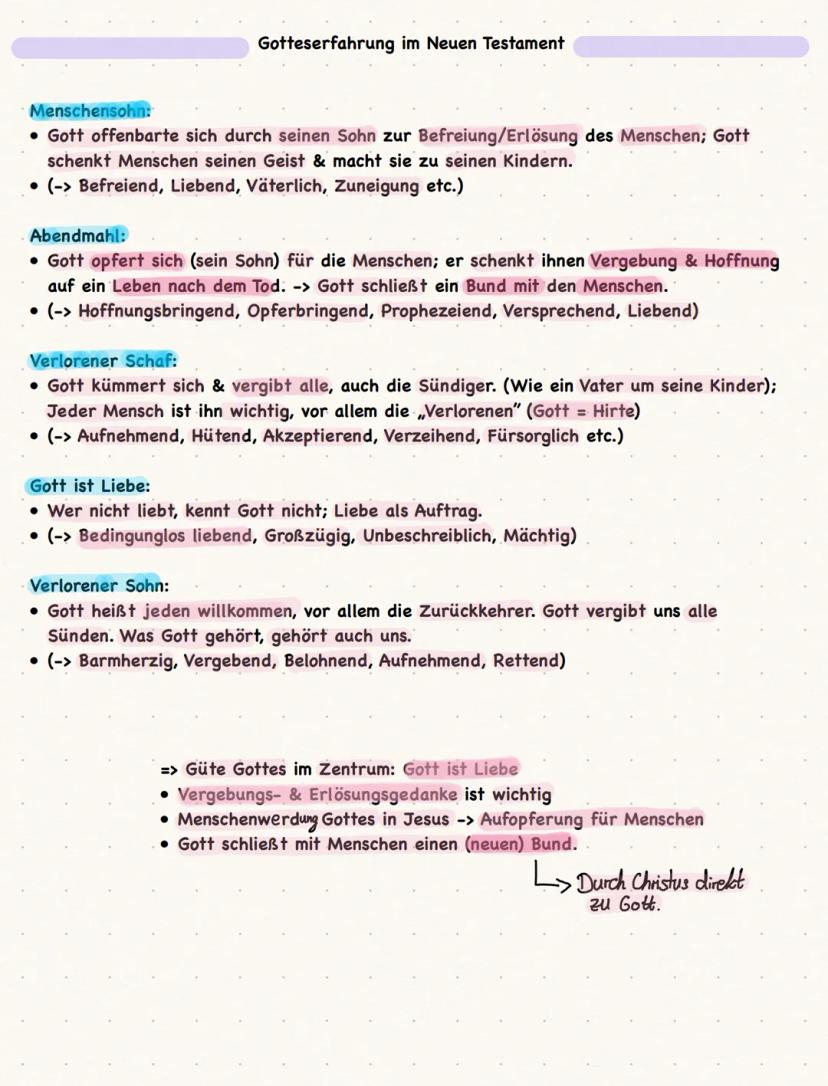 Gotteserfahrung im Neuen Testament
Menschensohn:
• Gott offenbarte sich durch seinen Sohn zur Befreiung/Erlösung des Menschen; Gott
schenkt Menschen seinen Geist & macht sie zu seinen Kindern.
• (-> Befreiend, Liebend, Väterlich, Zuneigung etc.)
Abendmahl:
• Gott opfert sich (sein Sohn) für die Menschen; er schenkt ihnen Vergebung & Hoffnung
auf ein Leben nach dem Tod. -> Gott schließt ein Bund mit den Menschen.
• (-> Hoffnungsbringend, Opferbringend, Prophezeiend, Versprechend, Liebend)
Verlorener Schaf:
• Gott kümmert sich & vergibt alle, auch die Sündiger. (Wie ein Vater um seine Kinder);
Jeder Mensch ist ihn wichtig, vor allem die „Verlorenen” (Gott = Hirte)
• (-> Aufnehmend, Hütend, Akzeptierend, Verzeihend, Fürsorglich etc.)
Gott ist Liebe:
• Wer nicht liebt, kennt Gott nicht; Liebe als Auftrag.
• (-> Bedingunglos liebend, Großzügig, Unbeschreiblich, Mächtig)
Verlorener Sohn:
• Gott heißt jeden willkommen, vor allem die Zurückkehrer. Gott vergibt uns alle
Sünden. Was Gott gehört, gehört auch uns.
• (-> Barmherzig, Vergebend, Belohnend, Aufnehmend, Rettend)
=> Güte Gottes im Zentrum: Gott ist Liebe
• Vergebungs- & Erlösungsgedanke ist wichtig
• Menschenwerdung Gottes in Jesus -> Aufopferung für Menschen
• Gott schließt mit Menschen einen (neuen) Bund.
-> Durch Christus direkt
zu Gott.